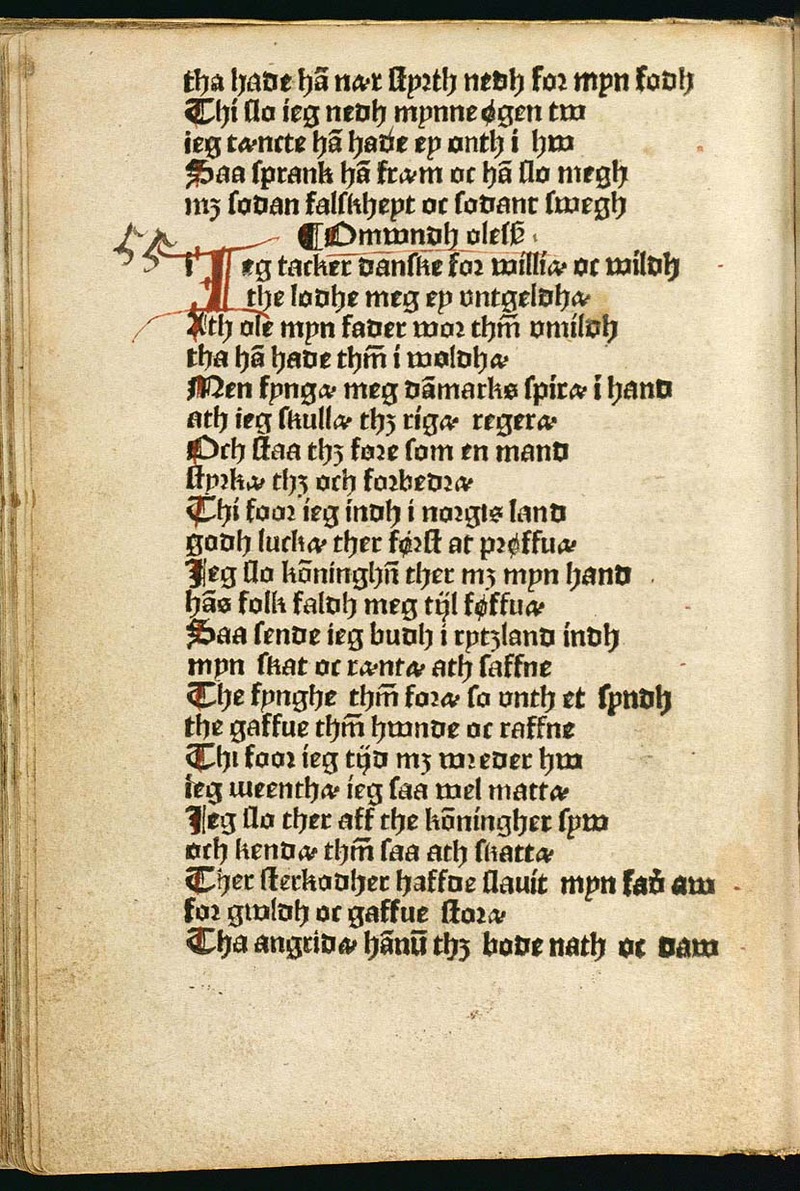 tha hade hā nær styrth nedh for myn fodh
Thi slo ieg nedh mynne øgen tw
ieg tæncte hā hade ey onth i hw
Saa sprank hā fræm oc hā slo megh
mꝫ sodan falskheyt oc sodant swegh
¶Omwndh olesē
55
Ieg tacker danske for williæ oc wildh
the lodhe meg ey vntgeldhæ
Ath ole myn fader wor thm̄ vmildh
tha hā hade thm̄ i woldhæ
Men fyngæ meg dāmarks spiræ i hand
ath ieg skullæ thꝫ rigæ regeræ
Och staa thꝫ fore som en mand
styrkæ thꝫ och forbedræ
Thi foor ieg indh i norgis land
godh luckæ ther først at prøffuæ
Jeg slo kōninghn̄ ther mꝫ myn hand
hās folk faldh meg tijl føffuæ
Saa sende ieg budh i rytzland indh
myn skat oc ræntæ ath saffne
The fynghe thm̄ foræ so onth et syndh
the gaffue thm̄ hwnde oc raffne
Thi foor ieg tijd mꝫ wreder hw
ieg weenthæ ieg saa wel mattæ
Jeg slo ther aff the kōningher syw
och kendæ thm̄ saa ath skattæ
Ther sterkodher haffde slauit myn fad̄ aw
for gwldh oc gaffue storæ
Tha angridæ hānū thꝫ bode nath oc daw